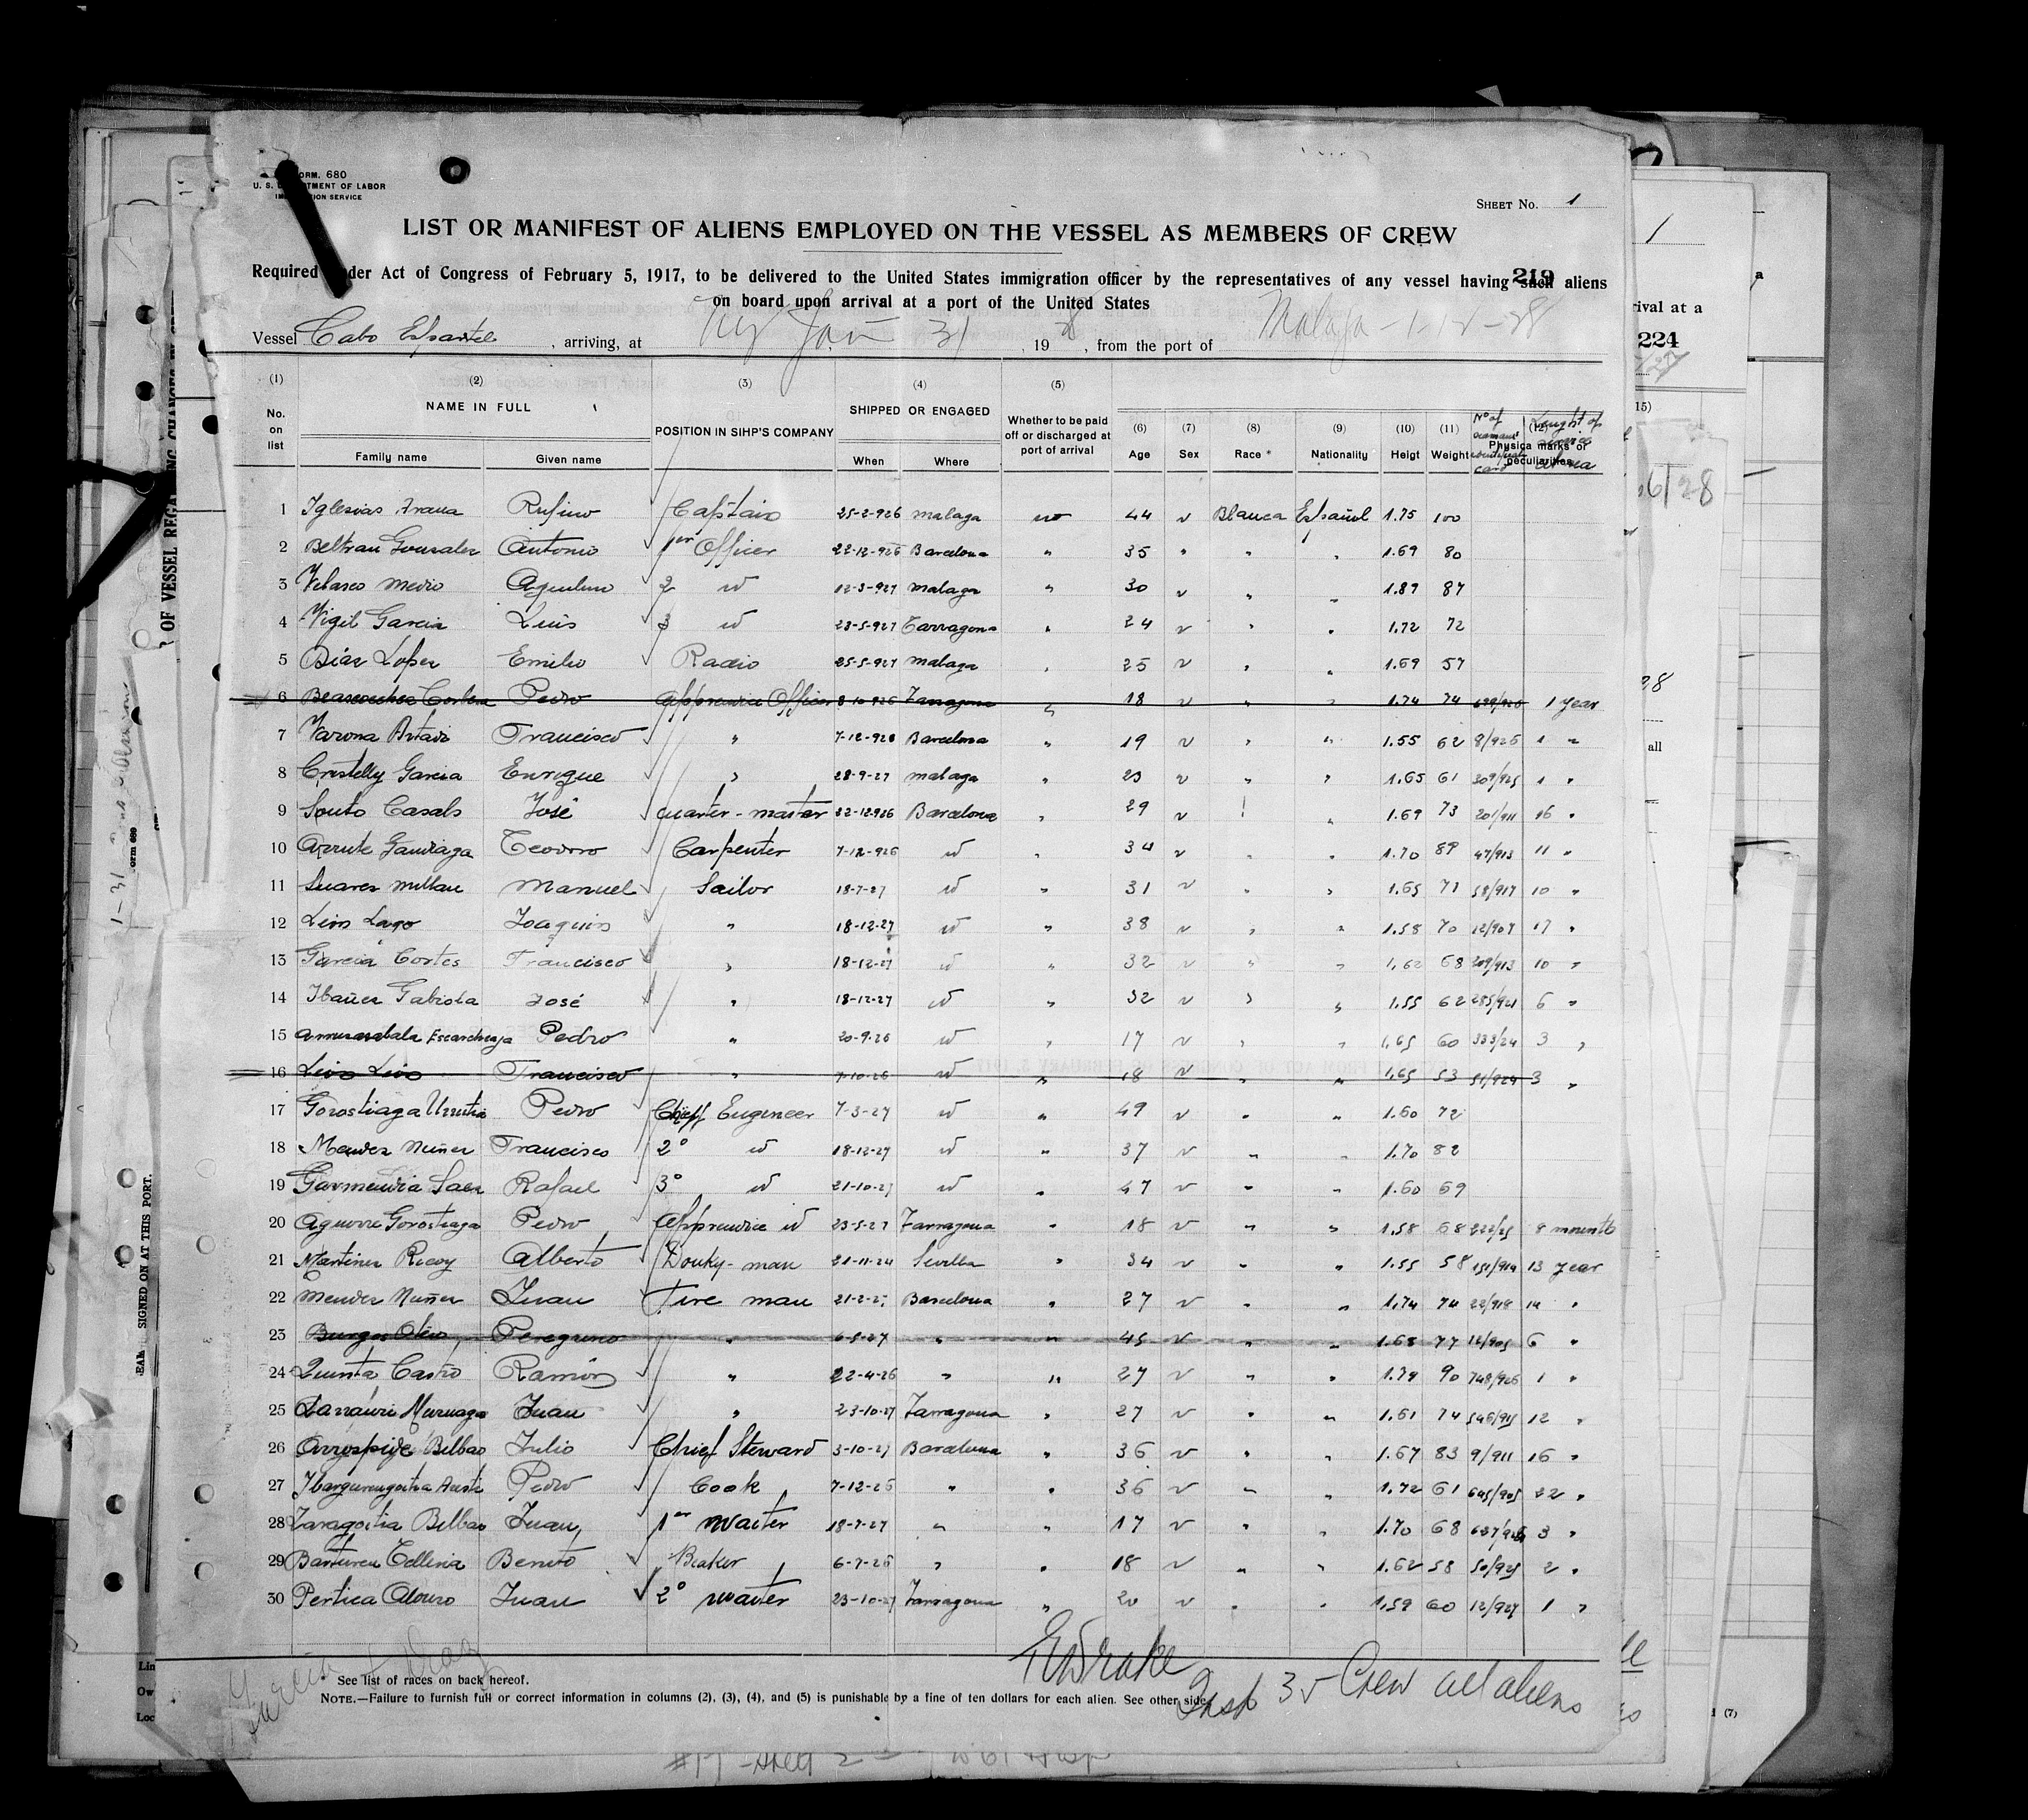 FORM. 680
U. S. DEPARTMENT OF LABOR
IMMIGRATION SERVICE
SHEET No. 1
LIST OR MANIFEST OF ALIENS EMPLOYED ON THE VESSEL AS MEMBERS OF CREW
Required under Act of Congress of February 5, 1917, to be delivered to the United States immigration officer by the representatives of any vessel having such aliens
219
on board upon arrival at a port of the United States
Vessel Cabo Espartel , arriving, at NY Jan 31 , 19 28 , from the port of Malaga - 1-12-28
(1) (2) (3) (4) (5) (6) (7) (8) (9) (10) (11) (12)
No. on list NAME IN FULL POSITION IN SIHP'S COMPANY SHIPPED OR ENGAGED Whether to be paid off or discharged at port of arrival Age Sex Race * Nationality Heigt Weight Physica marks or peculiarities
Family name Given name When Where
1 Iglesias Arana Rufino Captain 25-2-926 Malaga no 44 v Blanca Español 1.75 100
2 Beltran Gonzalez Antonio 1er Officer 22-12-926 Barcelona " 35 " " " 1.69 80
3 Velasco Medio Aquilino 2 id 12-3-927 Malaga " 30 v " " 1.89 87
4 Vigil Garcia Luis 3 id 28-5-927 Tarragona " 24 v " " 1.72 72
5 Diaz Lopez Emilio Radio 25-5-927 Malaga " 25 v " " 1.69 57
6 Pedro apprentice Officer 8-10-926 Tarragona " 18 v " " 1.74 74 1 year
7 Varona Francisco " 7-12-926 Barcelona " 19 v " " 1.55 62 8/926 1 "
8 Cristelly Garcia Enrique " 28-9-27 Malaga " 23 v " " 1.65 61 309/925 1 "
9 Souto Casals José quarter-master 22-12-926 Barcelona " 29 v " " 1.69 73 201/911 16 "
10 Teodoro Carpenter 7-12-926 id " 34 v " " 1.70 89 47/913 11 "
11 Suarez Millan Manuel Sailor 18-7-27 id " 31 v " " 1.65 71 58/917 10 "
12 Lago Joaquin " 18-12-27 id " 38 v " " 1.58 70 12/907 17 "
13 Garcia Cortes Francisco " 18-12-27 id " 32 v " " 1.62 68 209/913 10 "
14 Ibañez Gabiola José " 18-12-27 id " 32 v " " 1.55 62 285/921 6 "
15 Pedro " 20-9-26 id " 17 v " " 1.65 60 333/24 3 "
16 Francisco " 7-10-26 id " 18 v " " 1.65 53 51/924 3 "
17 Gorostiaga Urrutia Pedro Chieff Engineer 7-3-27 id " 49 v " " 1.60 72
18 Mendez Nuñez Francisco 2º id 18-12-27 id " 37 v " " 1.70 82
19 Garmendia Saez Rafael 3º id 21-10-27 id " 47 v " " 1.60 69
20 Aguirre Gorostiaga Pedro Apprendice id 23-5-27 Tarragona " 18 v " " 1.58 68 222/25 8 mounts
21 Martinez Ricoy Alberto Donky-man 21-11-24 Sevilla " 34 v " " 1.55 58 13 year
22 Mendez Nuñez Juan Fire man 21-2-27 Barcelona " 27 v " " 1.74 74 22/918 14 "
23 Burgos Peregrino " 6-5-27 " " 45 v " " 1.68 77 12/905 6 "
24 Quinta Castro Ramon " 22-4-26 " " 27 v " " 1.79 90 748/926 1 "
25 Larrauri Muruaga Juan " 23-10-27 Tarragona " 27 v " " 1.61 74 546/915 12 "
26 Arrospide Bilbao Julio Chief Steward 3-10-27 Barcelona " 36 v " " 1.67 83 9/911 16 "
27 Pedro Cook 7-12-26 " " 36 v " " 1.72 61 645/905 22 "
28 Zaragoitia Bilbao Juan 1er Waiter 18-7-27 " " 17 v " " 1.70 68 3 "
29 Barturen Benito Beaker 6-7-26 " " 18 v " " 1.62 58 50/925 2 "
30 Pertica Alonso Juan 2º Waiter 23-10-27 Tarragona " 20 v " " 1.59 60 12/927 1 "
* See list of races on back hereof.
NOTE.—Failure to furnish full or correct information in columns (2), (3), (4), and (5) is punishable by a fine of ten dollars for each alien. See other side.
Drake
Insp 35 Crew all aliens
1
rival at a
224
15)
6/28
28
all
(7)
SIGNED ON AT THIS PORT.
Form 680
Lin
Ow
Loc